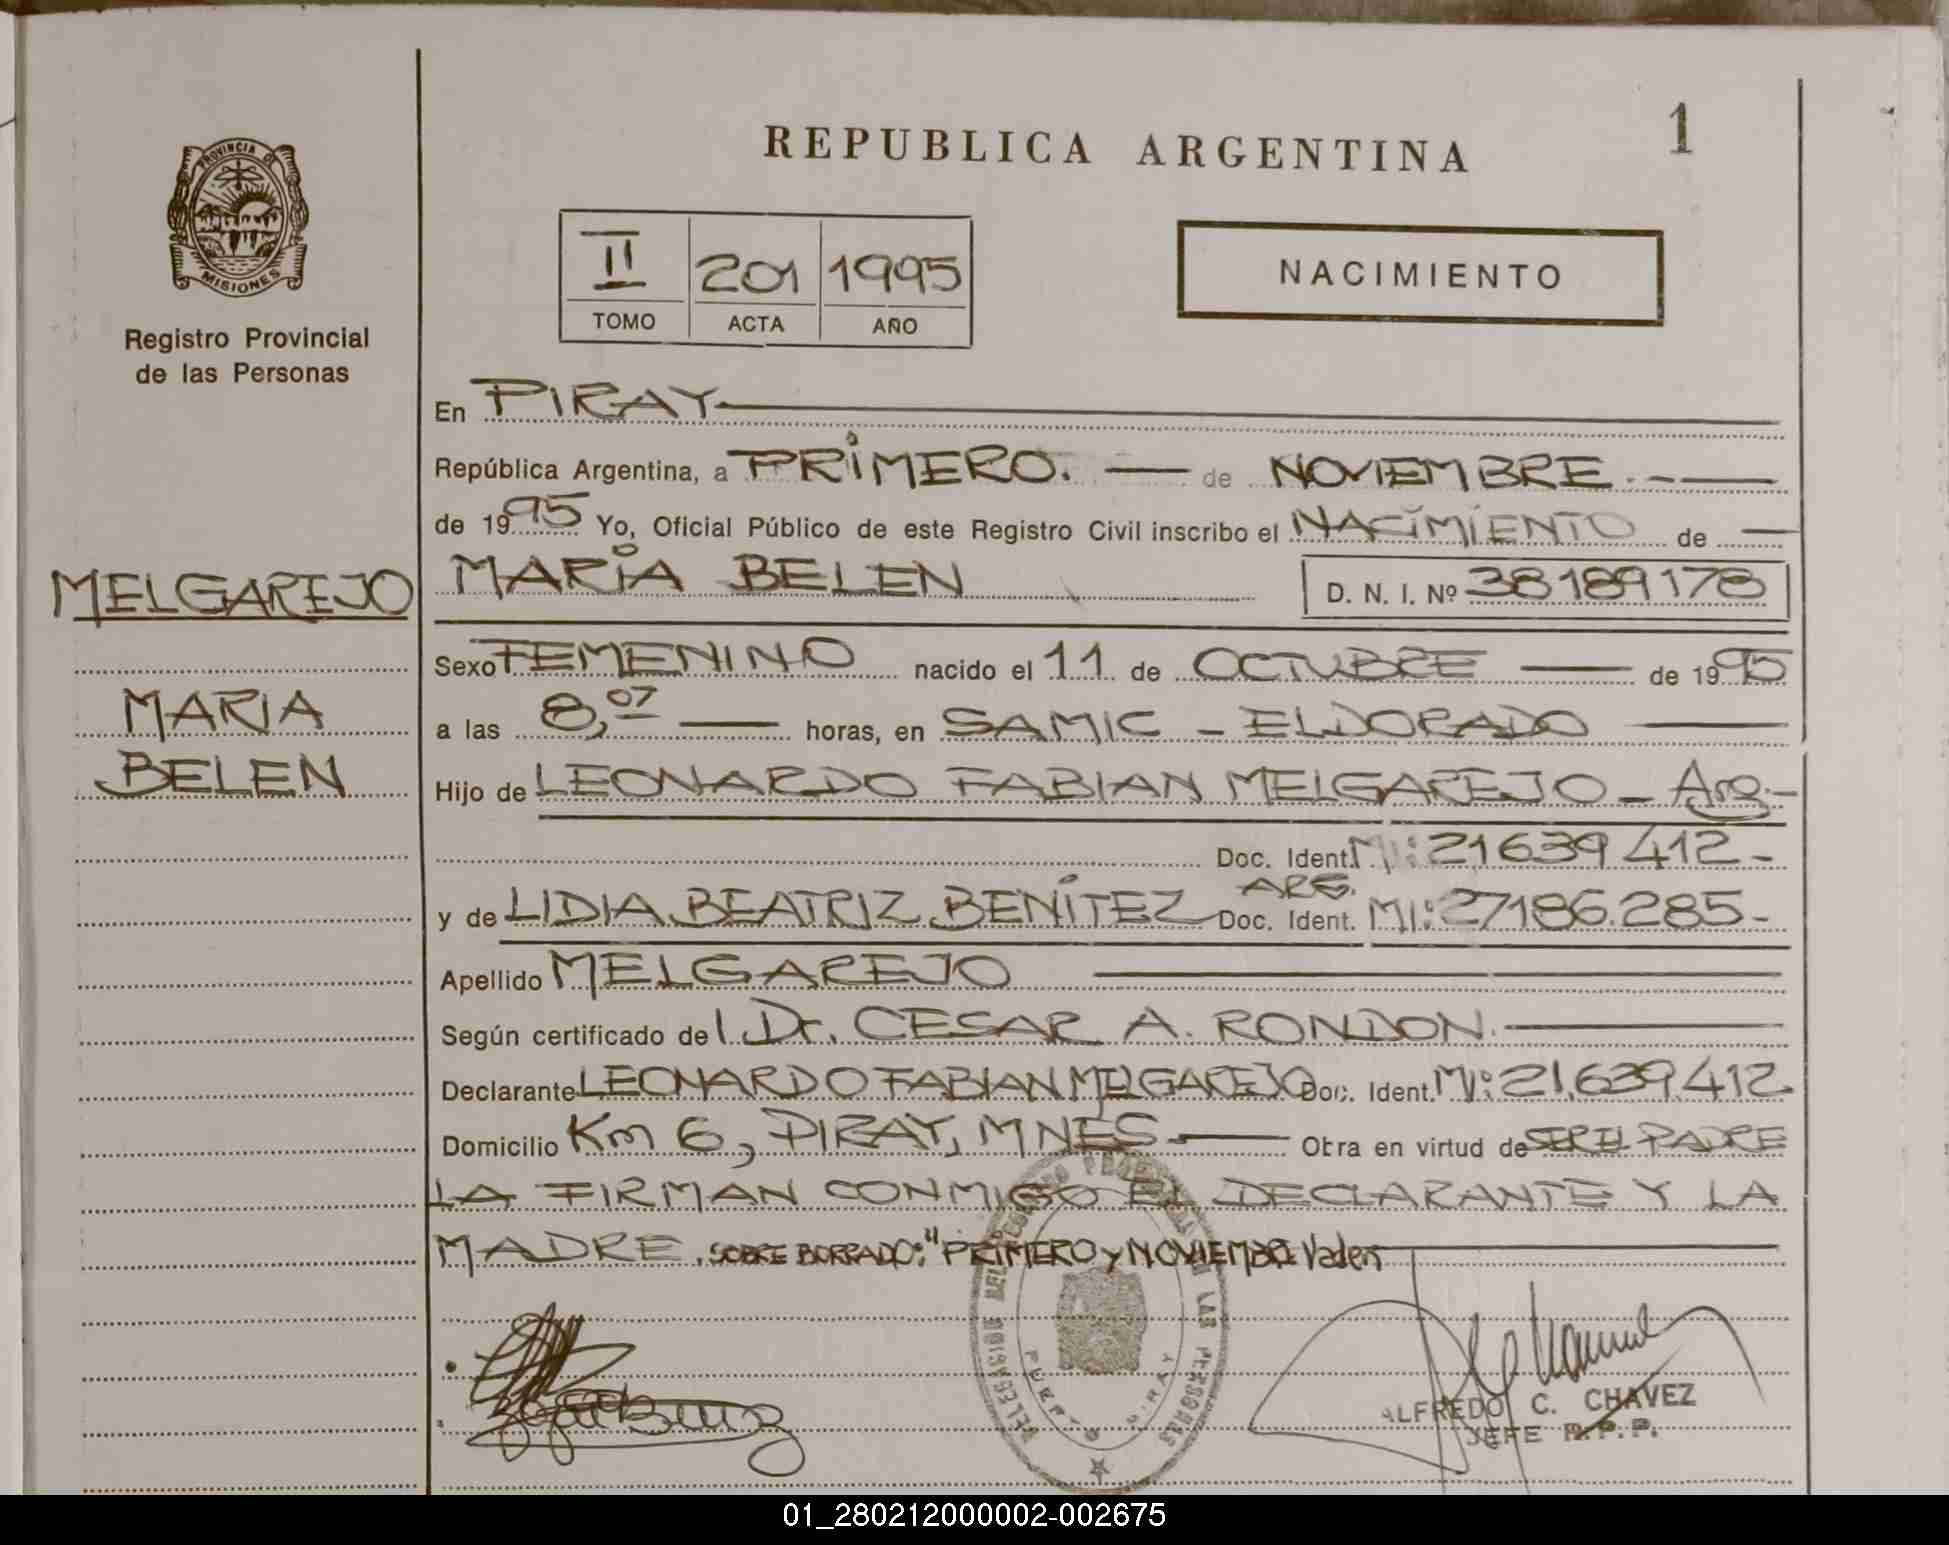 REPUBLICA ARGENTINA
1
PROVINCIA DE
MISIONES
Registro Provincial
de las Personas
II 201 1995
TOMO ACTA AÑO
NACIMIENTO
En PIRAY
República Argentina, a PRIMERO. — de NOVIEMBRE. —
de 1995 Yo, Oficial Público de este Registro Civil inscribo el NACIMIENTO de —
MELGAREJO
MARIA BELEN D. N. I. Nº 38189178
Sexo FEMENINO nacido el 11 de OCTUBRE — de 1995
MARIA
a las 8,07 — horas, en SAMIC - ELDORADO —
BELEN
Hijo de LEONARDO FABIAN MELGAREJO - Arg.-
Doc. Ident. MI: 21639412-
y de LIDIA BEATRIZ BENÍTEZ ARG. Doc. Ident. MI: 27186.285-
Apellido MELGAREJO
Según certificado del Dr. CESAR A. RONDON.
Declarante LEONARDO FABIAN MELGAREJO Doc. Ident. MI: 21.639.412
Domicilio Km 6, PIRAY, MNES — Obra en virtud de SER EL PADRE
LA FIRMAN CONMIGO EL DECLARANTE Y LA
MADRE. SOBRE BORRADO: "PRIMERO y NOVIEMBRE Valen
PUERTO PIRAY
ALFREDO C. CHAVEZ
JEFE R.P.P.
01_280212000002-002675